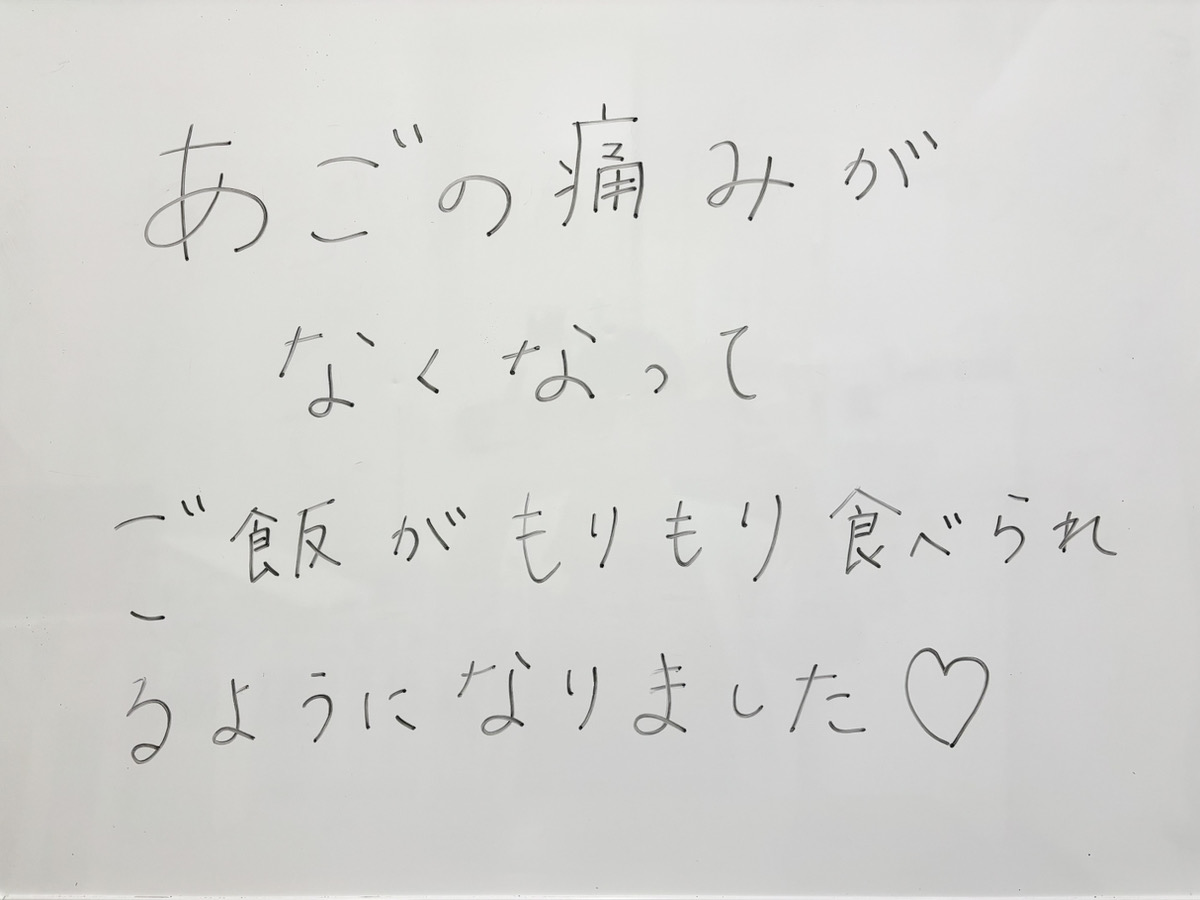 あごの痛みが
なくなって
ご飯がもりもり食べられ
るようになりました♡